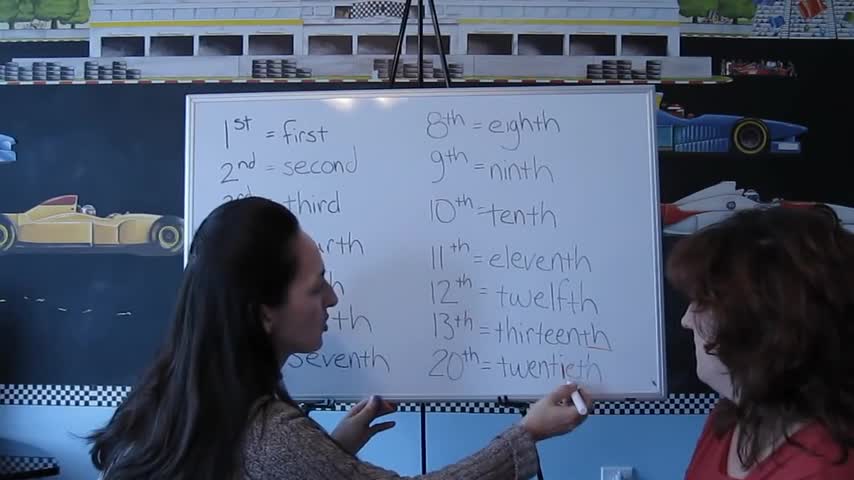 1st = first
2nd = second
3rd third
urth
th
th
seventh
8th = eighth
9th = ninth
10th = tenth
11th = eleventh
12th = twelfth
13th = thirteenth
20th = twentieth